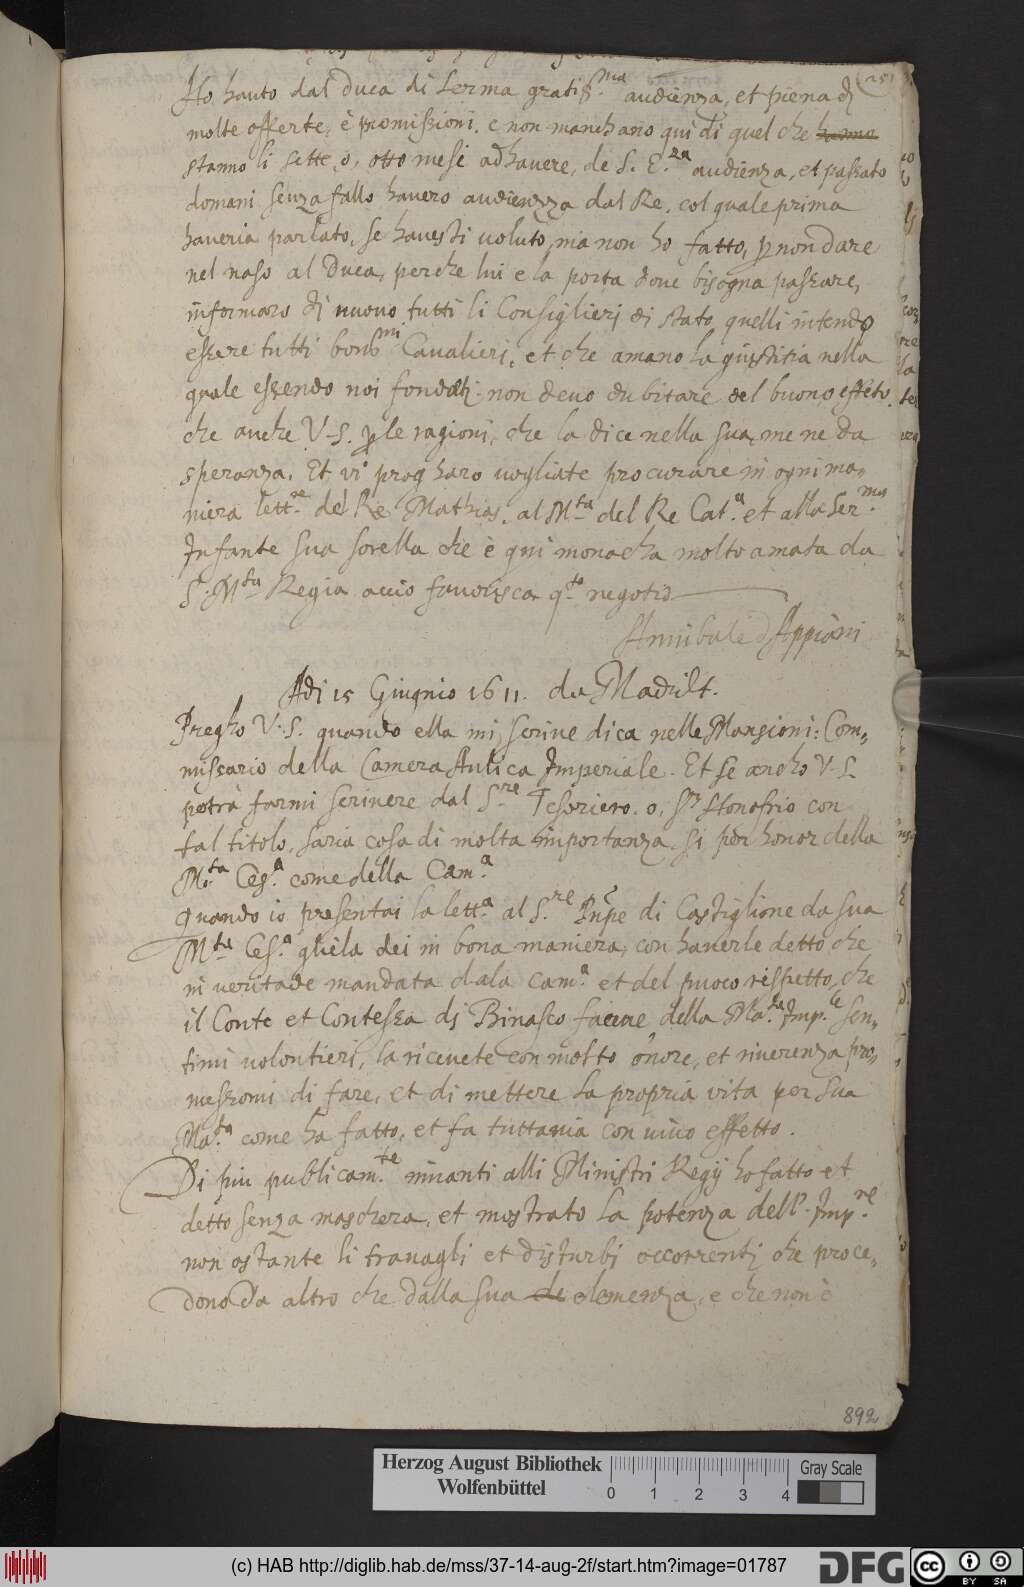 Ho hauto dal Duca di Lerma gratiss.ma audienza, et piena di
molte offerte, è promissioni. e non manchano qui di quel che hanno
stanno li sette, o, otto mesi ad havere, de S. E.za audienza, et passato
domani senza fallo havero audienza dal Re. col quale prima
haveria parlato, se havesti voluto, ma non ho fatto, p non dare
nel naso al Duca, perche lui e la porta dove bisogna passare,
informaro di nuovo tutti li Consiglieri di stato, quelli intendo
essere tutti boniss.mi Cavalieri, et che amano la giustitia nella
quale essendo noi fondati. non devo dubitare del buono effeto.
che anche V.S. p le ragioni, che la dice nella sua, me ne da
speranza. Et vi pregharo vogliate procurare in ogni ma„
niera lett.re del Re Mathias. al M.ta del Re Cat.a et alla Ser.ma
Infante sua sorella che è qui monacha molto amata da
S. M.ta Regia accio favorisca q.to negotio
Annibale d'Appiani
Adi 15 Giugnio 1611. da Madrilt.
Pregho V.S. quando ella mi scrive dica nelle Mansioni: Com„
missario della Camera Aulica Imperiale. Et se ancho V.S.
potrà farmi scrivere dal S.re Tesoriero. o, Stonofrio con
tal titolo, saria cosa di molta importanza, si per honor della
M.ta Ces.a come della Cam.a
Quando io presentai la lett.a al S.re Pnpe di Castiglione da sua
M.ta Ces.a gliela dei in bona maniera, con haverle detto che
in veritade mandata dala Cam.a et del puoco rispetto, che
il Conte et Contessa di Binasco faceve della Ma.ta Imp.le sen„
timi volontieri, la ricevete con molto onore, et riverenza pro„
messomi di fare, et di mettere la propria vita per sua
Ma.ta come ha fatto, et fa tuttavia con vivo effetto.
Di piu publicam.te inanti alli Ministri Regij ho fatto et
detto senza maschera, et mostrato la potenza dell'Imp.re
non ostante li travagli et disturbi occorrenti che proce„
dono da altro che dalla sua de clemenza, e che non è
892
Herzog August Bibliothek
Wolfenbüttel
0 1 2 3 4
Gray Scale
(c) HAB http://diglib.hab.de/mss/37-14-aug-2f/start.htm?image=01787
DFG
cc BY SA